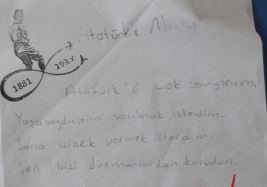 Atatürk'e Mektup
1881 193∞
Atatürk'ü çok seviyorum,
Yaşasaydı sana sarılmak isterdim.
Sana çiçek vermek isterdim.
Sen bizi düşmanlardan korudun.